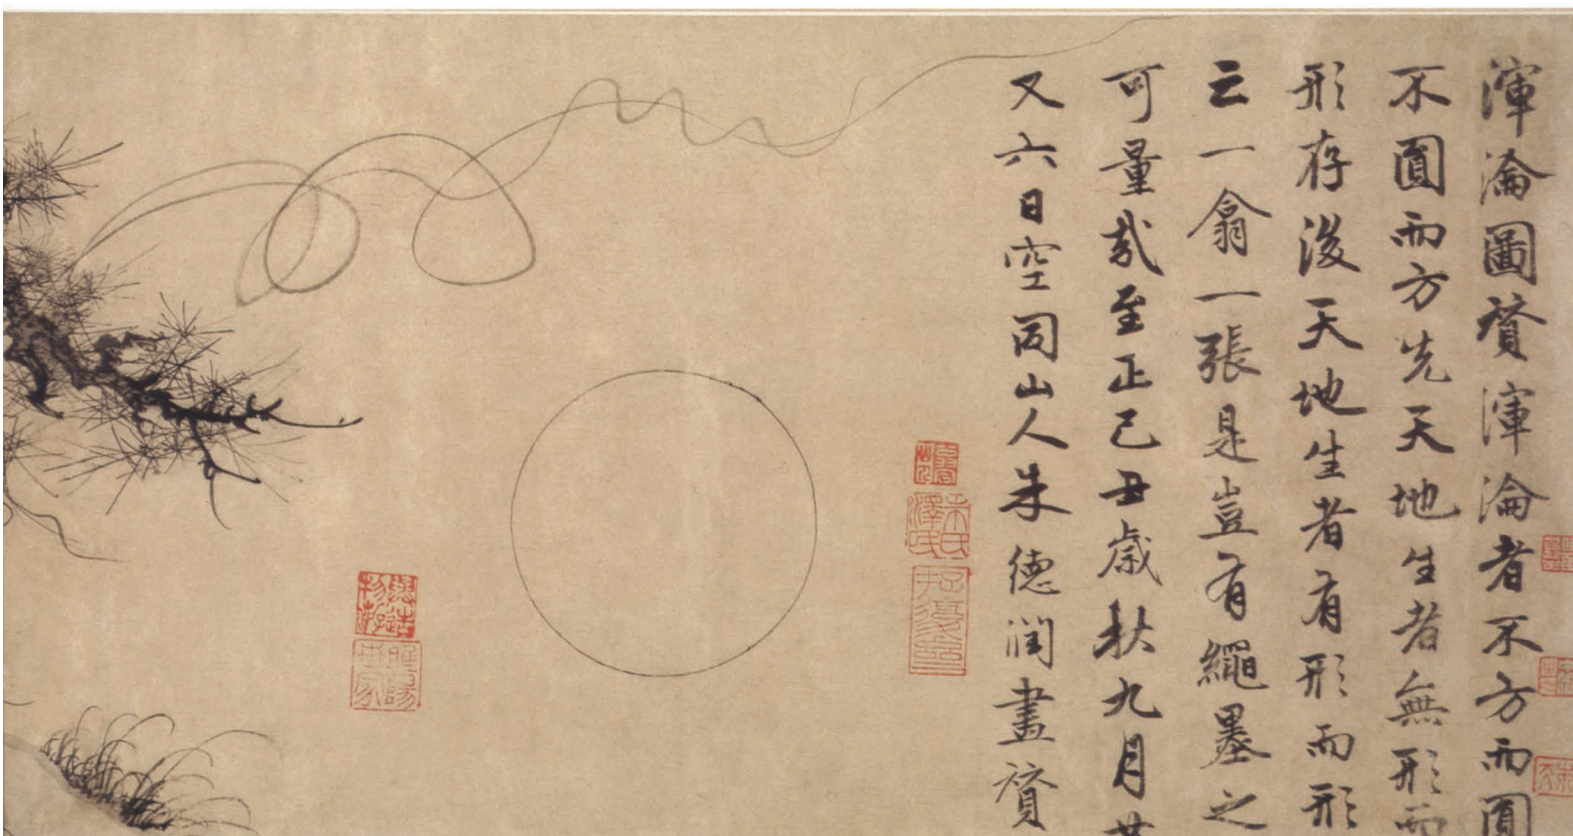 渾淪圖贊渾淪者不方而圓
不圓而方先天地生者無形而
形存後天地生者有形而形
云一翕一張是豈有繩墨之
可量哉至正己丑歲秋九月廿
又六日空同山人朱德潤畫贊
朱氏澤民
與造物遊
睢陽世家